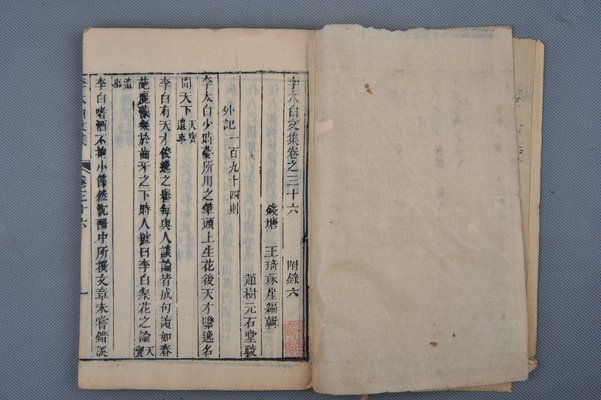 李太白文集卷之三十六
錢塘 王琦琢崖編輯 附錄六
趙樹元石堂較
外記一百九十四則
李太白少時夢所用之筆頭上生花後天才贍逸名
聞天下天寶遺事
李白有天才俊逸之譽每與人談論皆成句讀如春
葩麗藻粲於齒牙之下時人號曰李白粲花之論天寶
遺事
李白嗜酒不拘小節然沈酣中所撰文章未嘗錯誤